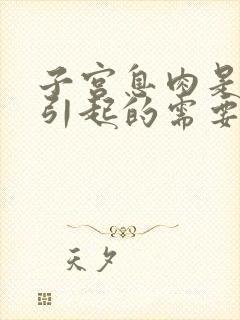 子宫息肉是
引起的需要
天夕